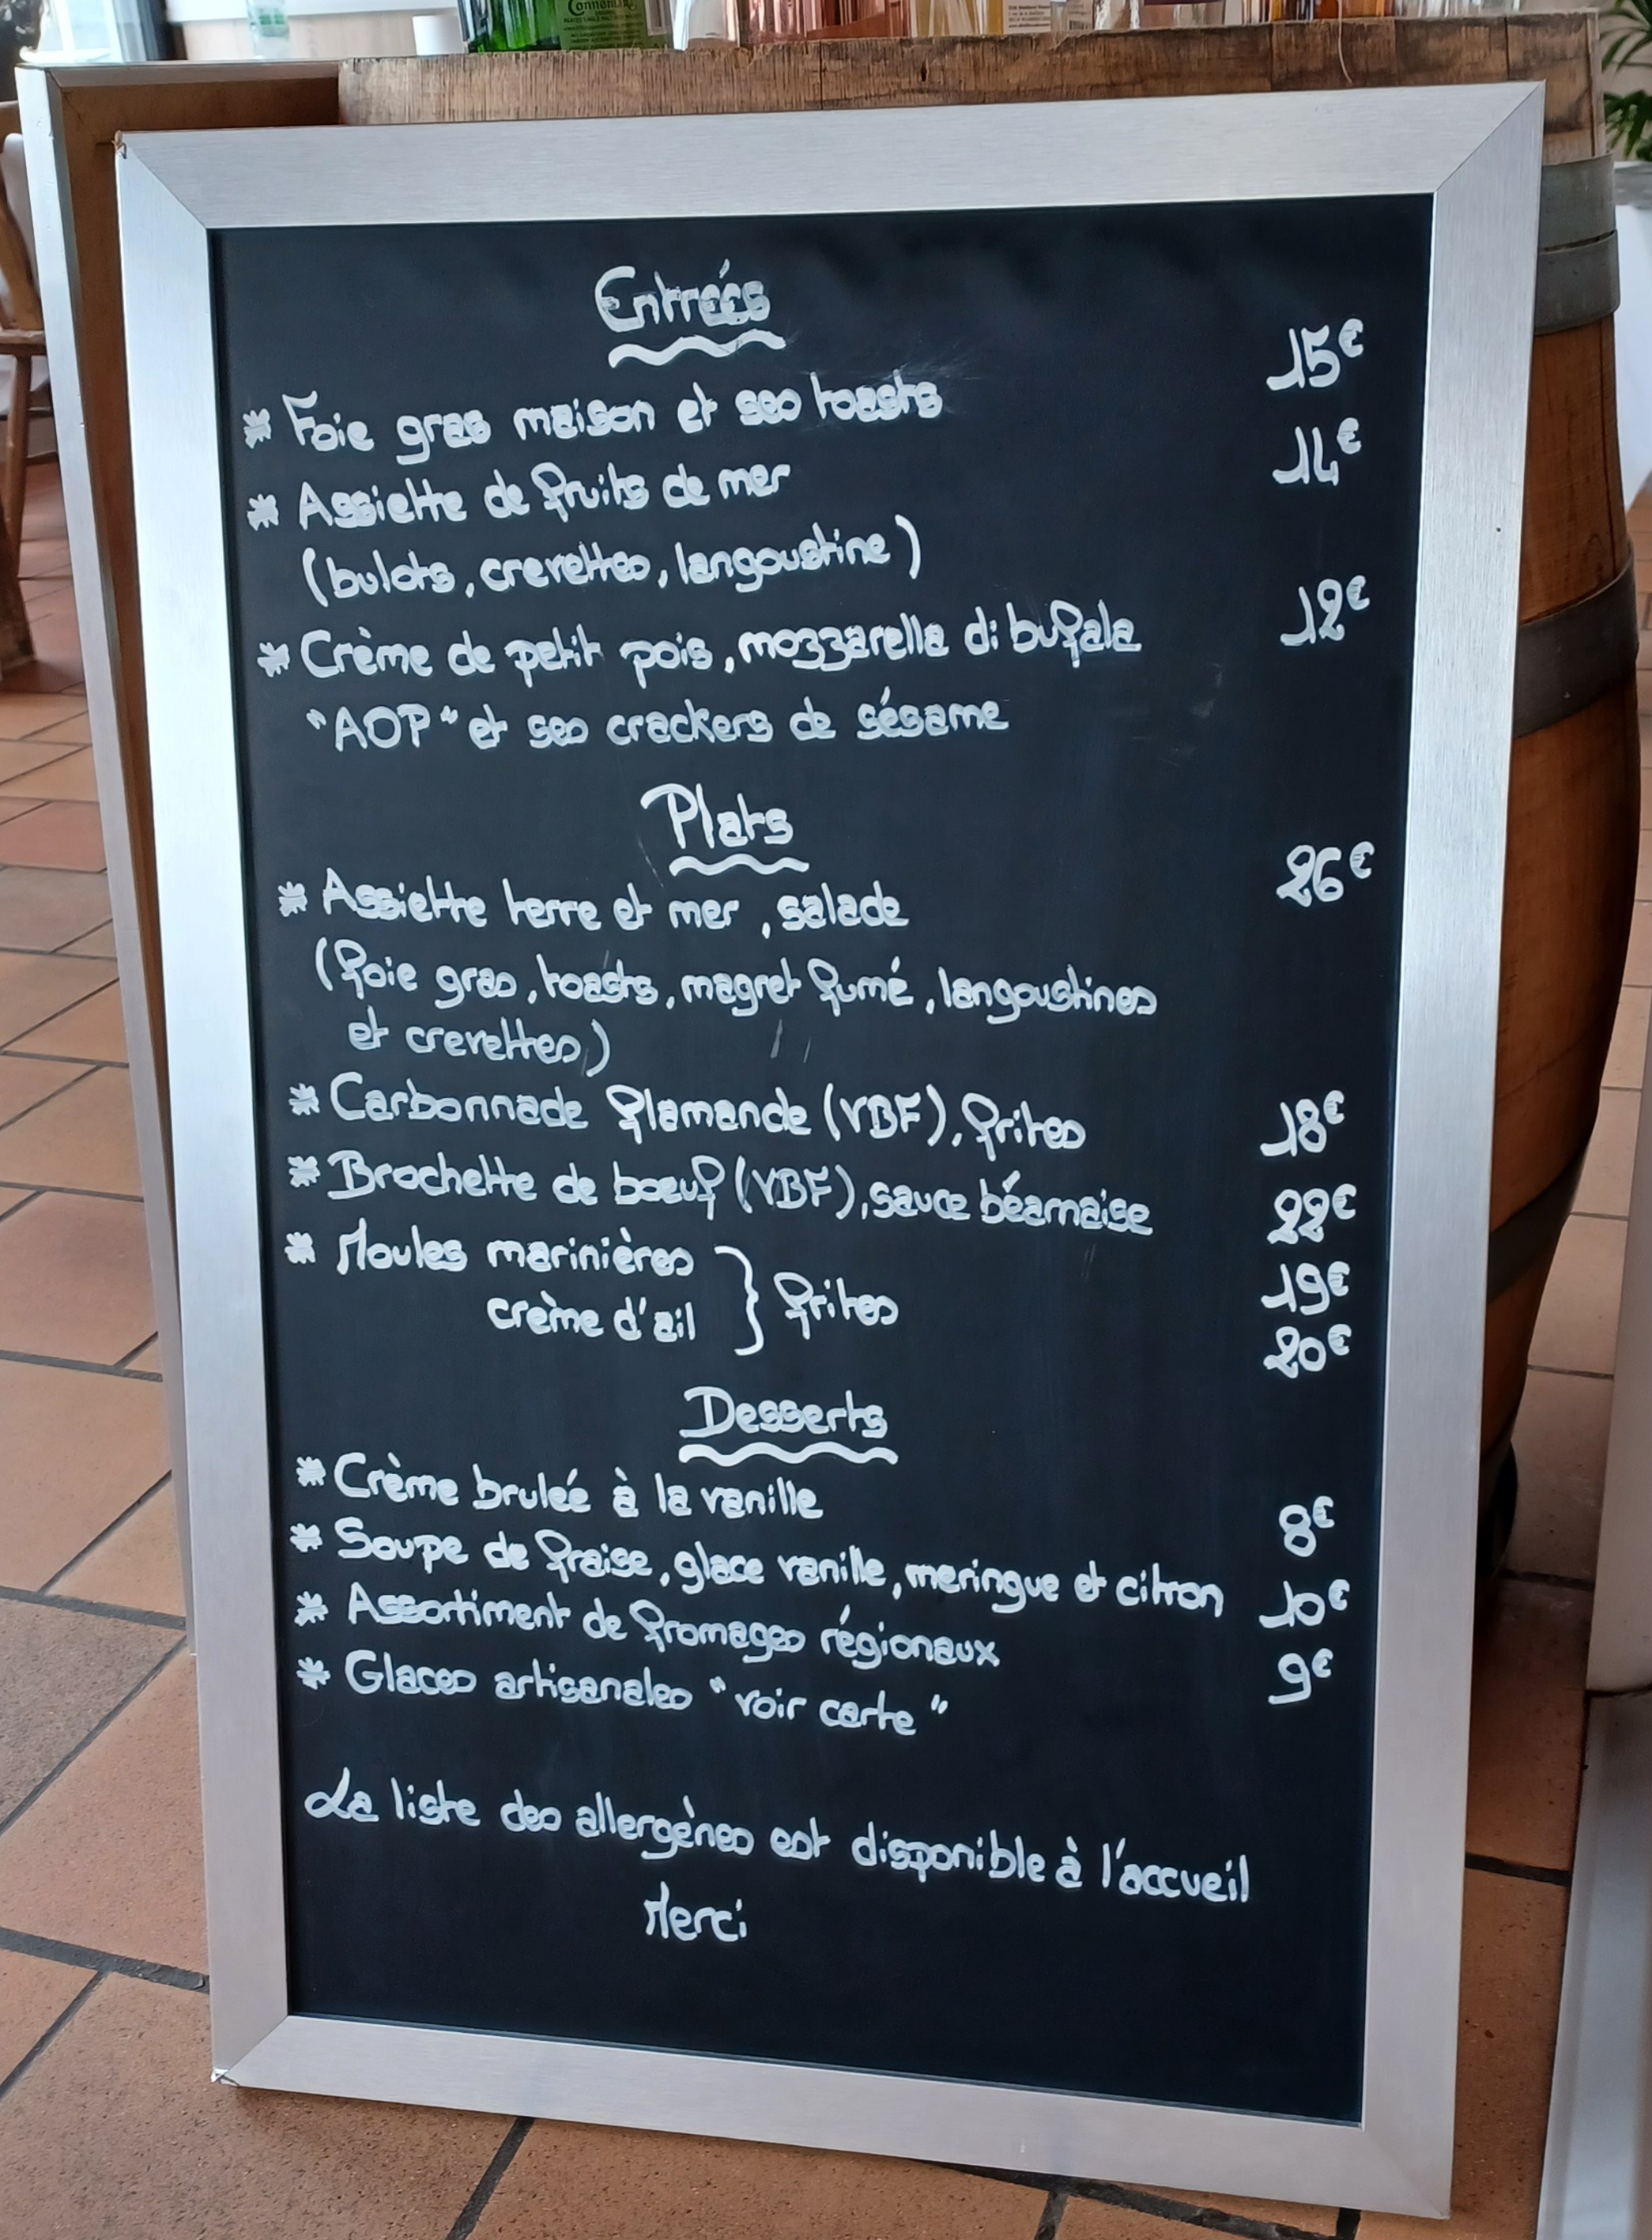 Connemara
Entrées
* Foie gras maison et ses toasts 15€
* Assiette de fruits de mer 14€
(bulots, crevettes, langoustine)
* Crème de petit pois, mozzarella di bufala 12€
"AOP" et ses crackers de sésame
Plats
* Assiette terre et mer, salade 26€
(foie gras, toasts, magret fumé, langoustines
et crevettes)
* Carbonnade flamande (VBF), frites 18€
* Brochette de boeuf (VBF), sauce béarnaise 22€
* Moules marinières } frites 19€
crème d'ail 20€
Desserts
* Crème brulée à la vanille 8€
* Soupe de fraise, glace vanille, meringue et citron 10€
* Assortiment de fromages régionaux 9€
* Glaces artisanales "voir carte"
La liste des allergènes est disponible à l'accueil
Merci